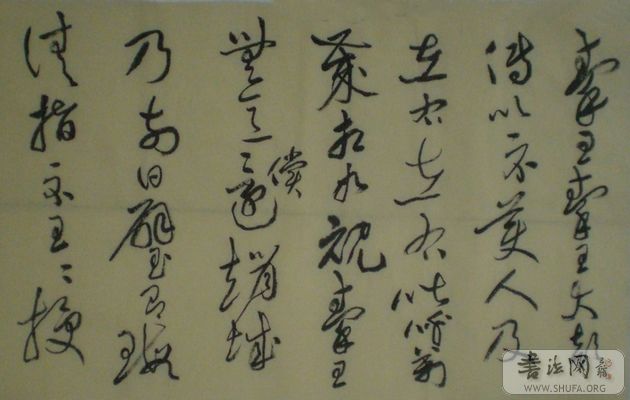 秦王秦王大喜
傳以示美人及
左右左右皆呼萬
歲相如視秦王
無意償趙城
乃前曰璧有瑕
請指示王〻授
書法网
WWW.SHUFA.ORG